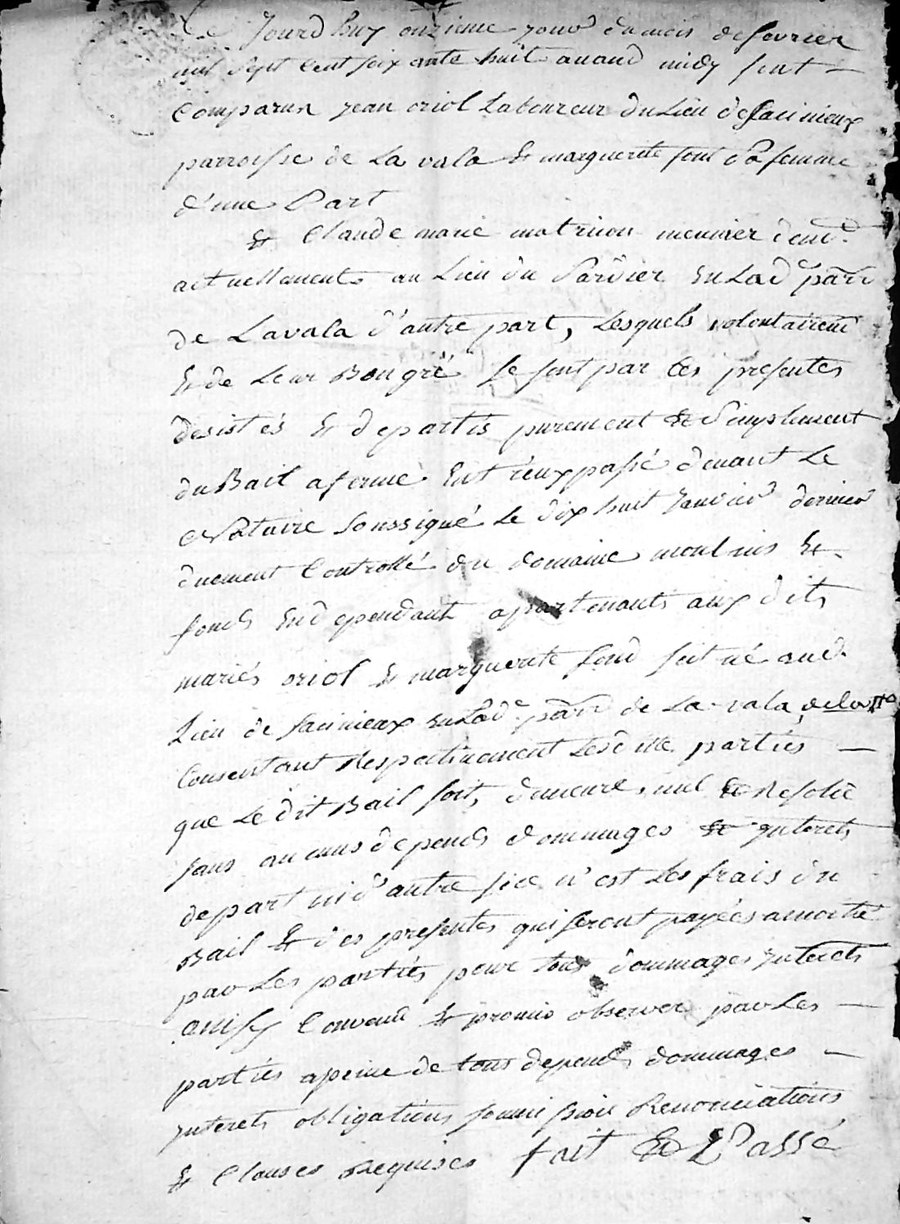 Ce Jourd huy onzieme jour du mois de fevrier
mil sept cent soixante huit avand midy sont
Comparus jean oriol Laboureur du Lieu de Sacinieux
parroisse de La vala & marguerite font sa femme
d'une Part
& Claude marie matricon meunier demt.
actuellement au Lieu du Sardier en Lade parr
de Lavala d'autre part, Lesquels volontairemt
& de Leur Bon gré se sont par Ces presentes
desistés & departis purement & Simplement
du Bail a ferme Entr'eux passé devant Le
Notaire Soussigné Le dix huit Janvier dernier
duement Controllé du domaine moulins &
fonds En dependant apartenants aux dits
mariés oriol & marguerite fond scitué aud.
Lieu de Sacinieux en Lade parr de La vala
Consentant Respectivement Lesdittes parties
que Le dit Bail soit, demeure, nul & Resolu
sans aucuns depends dommages & Interets
de part ni d'autre sice n'est Les frais du
Bail & des presentes qui seront payées a moitié
par Les parties pour tous dommages Interets
ainssy Convenu & promis observer par Les
parties a peine de tous depends dommages
Interets obligations Renonciations
& Clauses Requises fait & Passé